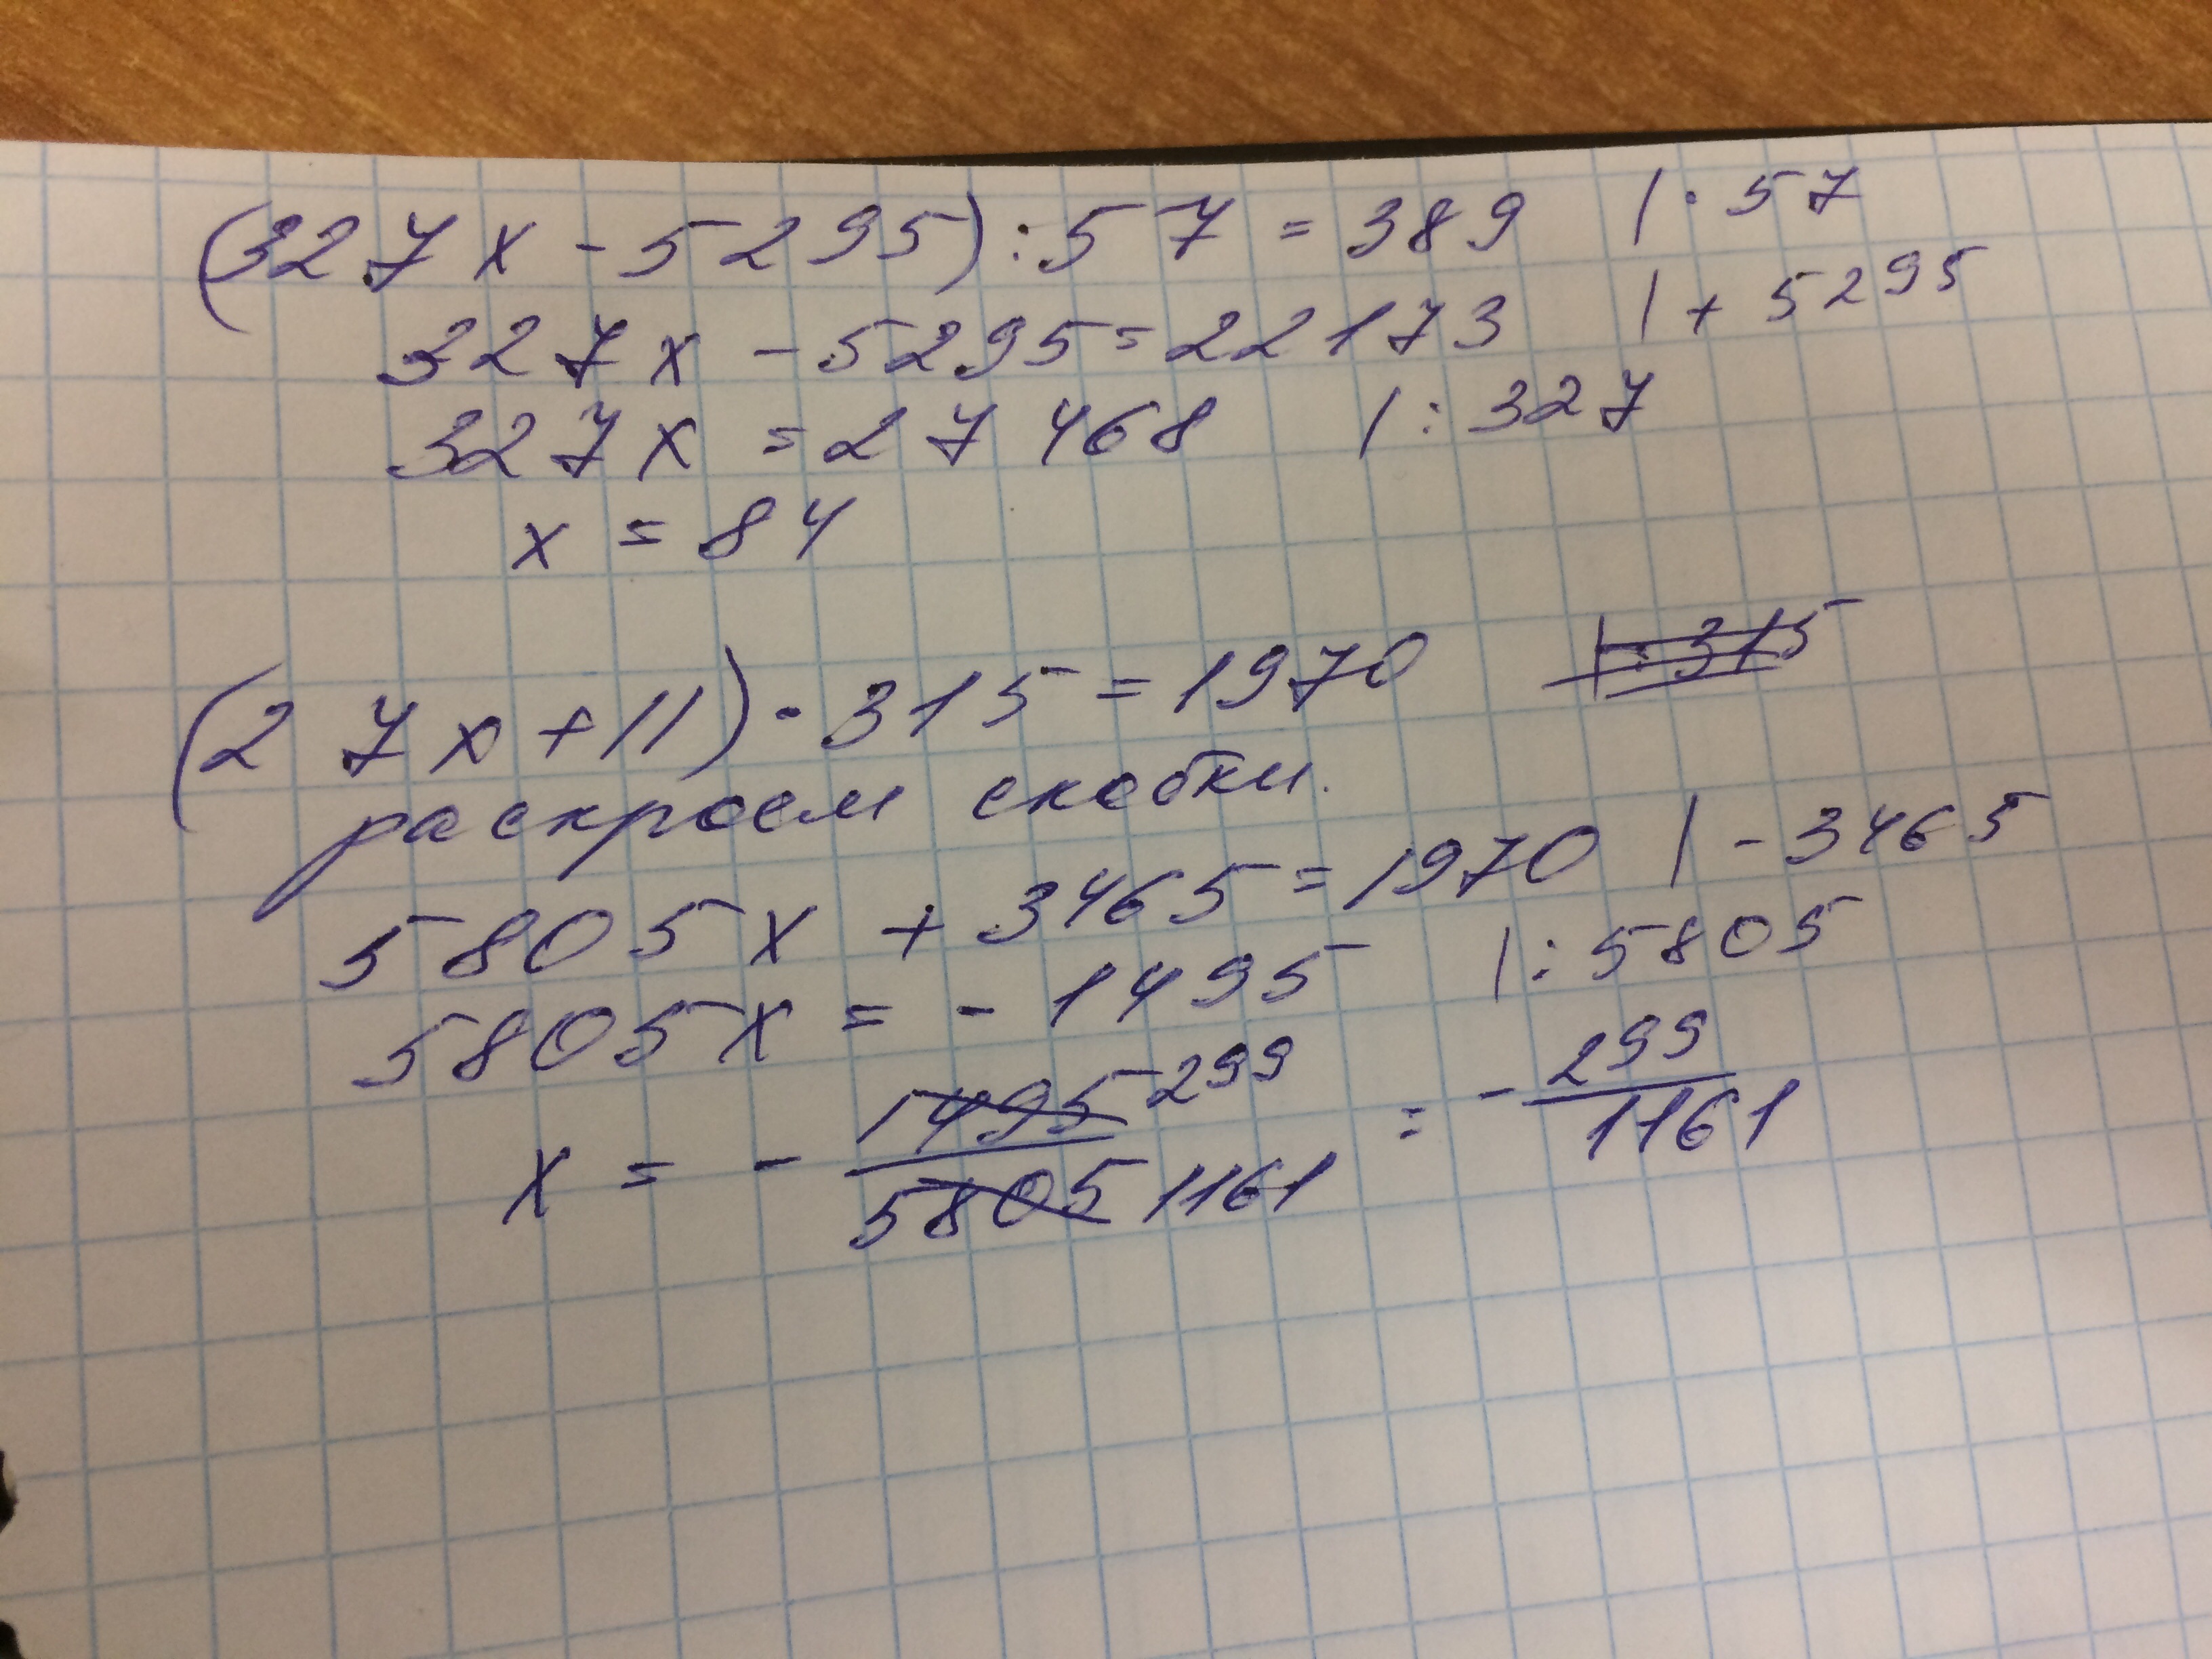 (327x - 5295) : 57 = 389 | · 57
327x - 5295 = 22173 | + 5295
327x = 27468 | : 327
x = 84
(27x + 11) · 315 = 1970 | : 315
раскроем скобки.
5805x + 3465 = 1970 | - 3465
5805x = - 1495 | : 5805
x = - 1495/5805 299/1161 = - 299/1161